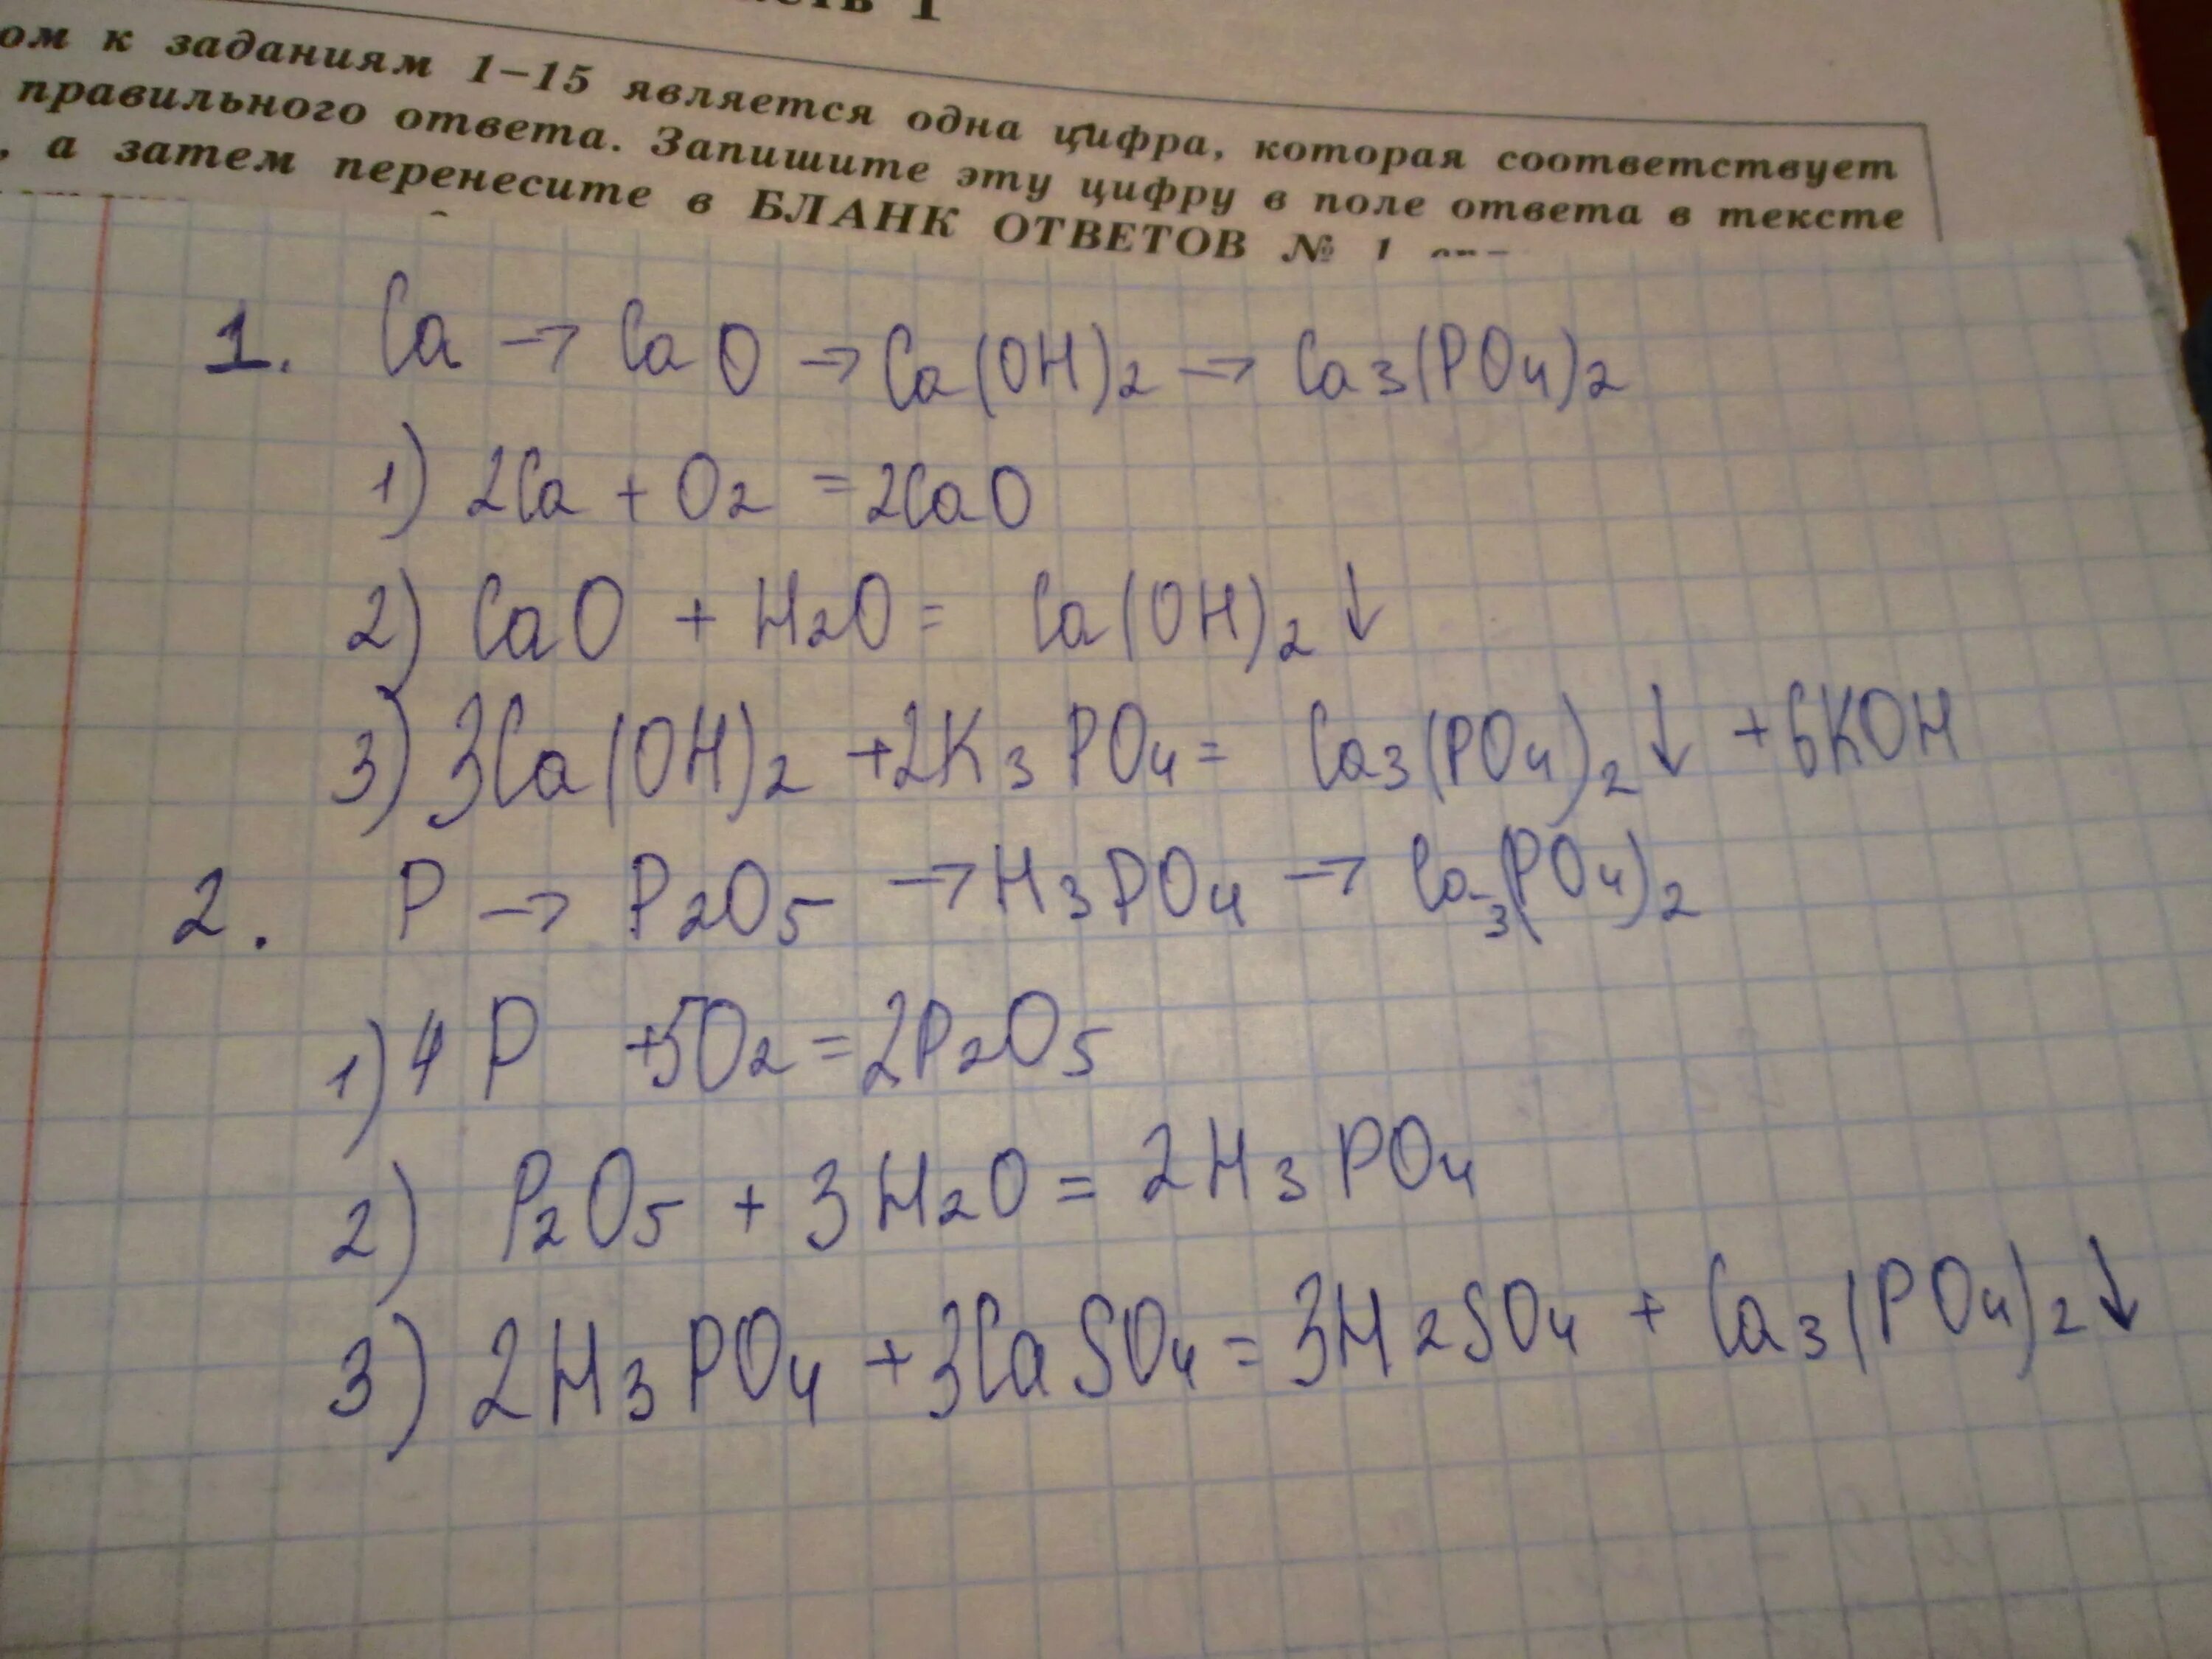 1
ом к заданиям 1–15 является одна цифра, которая соответствует
правильного ответа. Запишите эту цифру в поле ответа в тексте
, а затем перенесите в БЛАНК ОТВЕТОВ № 1
1. Ca → CaO → Ca(OH)2 → Ca3(PO4)2
1) 2Ca + O2 = 2CaO
2) CaO + H2O = Ca(OH)2↓
3) 3Ca(OH)2 + 2K3PO4 = Ca3(PO4)2↓ + 6KOH
2. P → P2O5 → H3PO4 → Ca3(PO4)2
1) 4P + 5O2 = 2P2O5
2) P2O5 + 3H2O = 2H3PO4
3) 2H3PO4 + 3CaSO4 = 3H2SO4 + Ca3(PO4)2↓